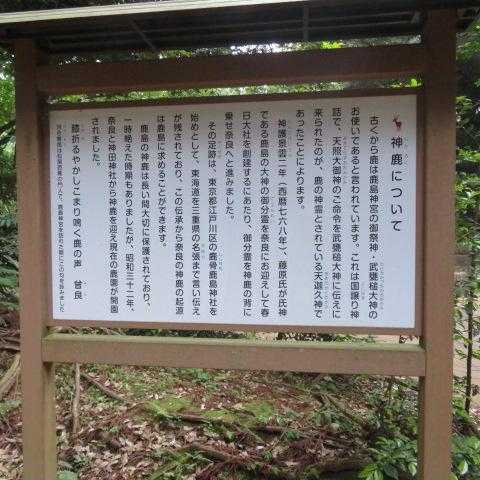 神鹿について
古くから鹿は鹿島神宮の御祭神・武甕槌大神の
お使いであると言われています。これは国譲り神
話で、天照大御神のご命令を武甕槌大神に伝えに
来られたのが、鹿の神霊とされている天迦久神で
あったことによります。
神護景雲二年（西暦七六八年）、藤原氏が氏神
である鹿島の大神の御分霊を奈良にお迎えして春
日大社を創建するにあたり、御分霊を神鹿の背に
乗せ奈良へと進みました。
その足跡は、東京都江戸川区の鹿骨鹿島神社を
始めとして、東海道を三重県の名張まで言い伝え
が残されており、この伝承から奈良の神鹿の起源
は鹿島に求めることができます。
鹿島の神鹿は長い間大切に保護されており、
一時絶えた時期もありましたが、昭和三十二年、
奈良と神田神社から神鹿を迎え現在の鹿園が開園
されました。
膝折るやかしこまり鳴く鹿の声　曾良